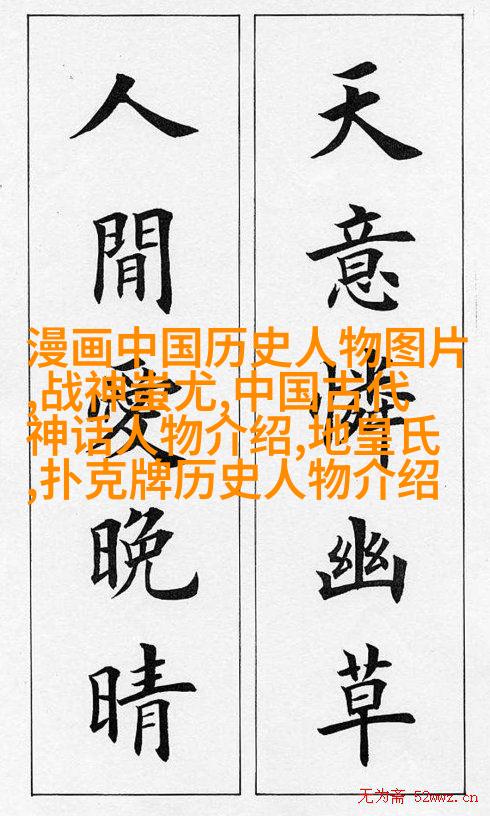 天意憐幽草
人閒愛晚晴
漫画中国历史人物图片
,战神蚩尤,中国古代
神话人物介绍,地皇氏
,扑克牌历史人物介绍
无为斋 52wwz.cn